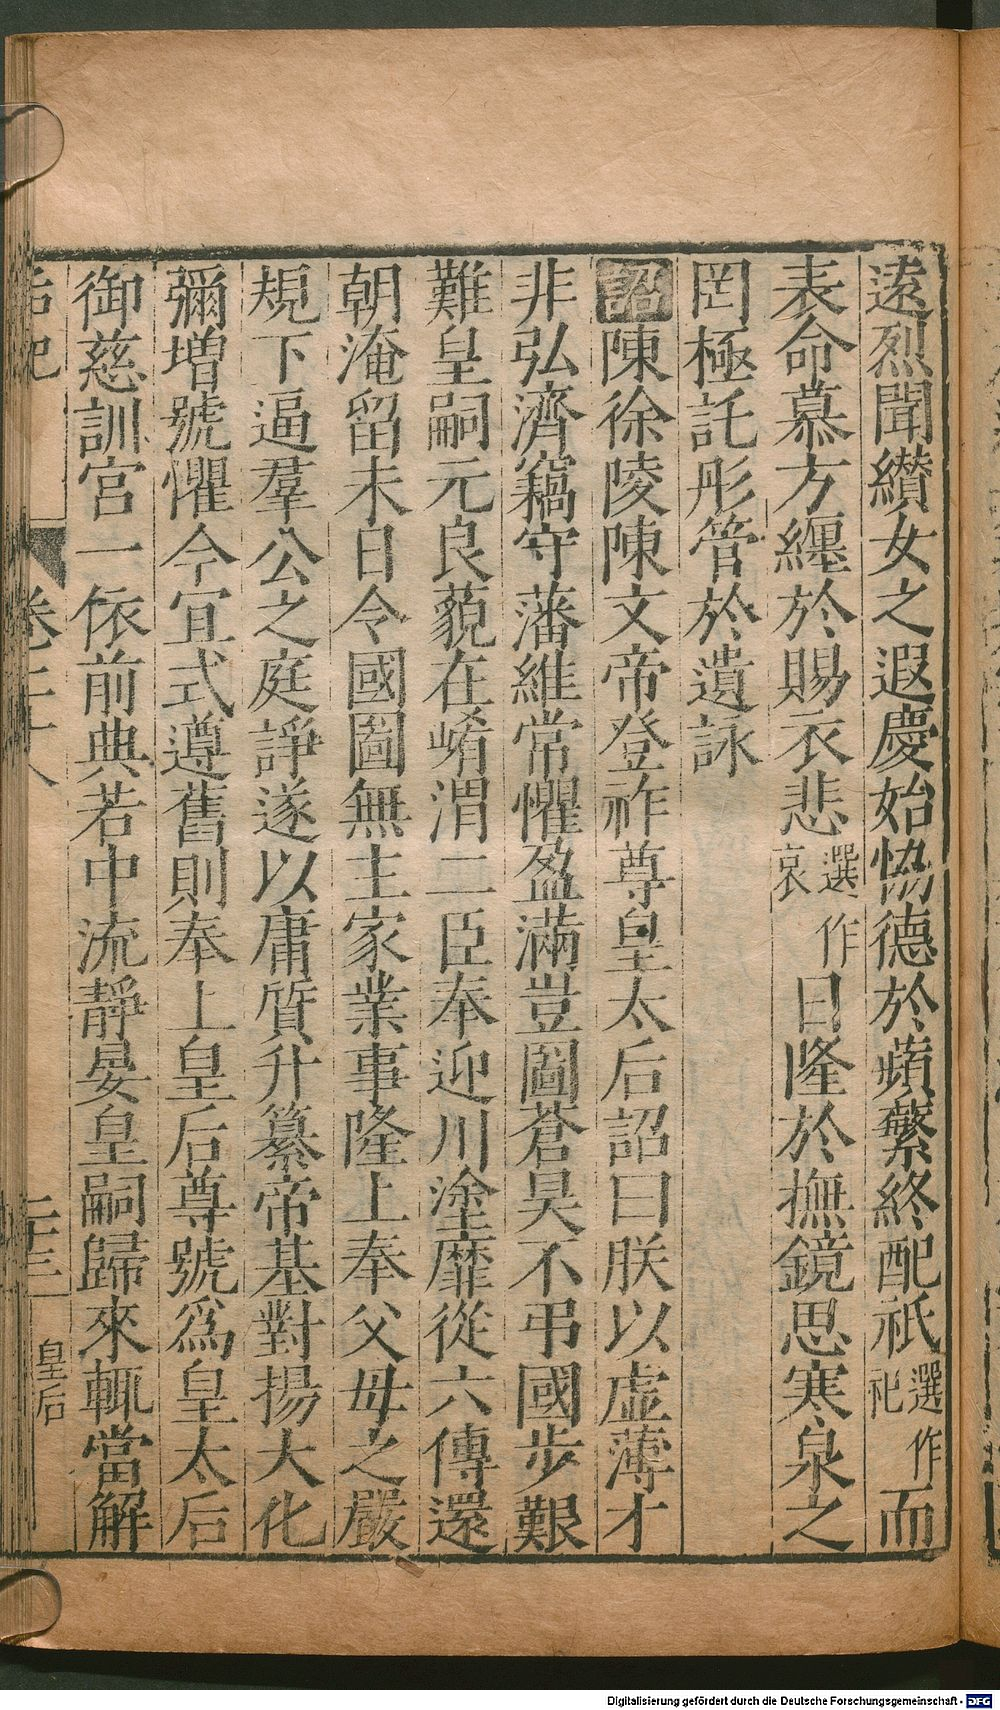 遠烈聞纘女之遐慶始恊德於蘋蘩終配祇選作祀而
表命慕方纏於賜衣悲選作哀日隆於撫鏡思寒泉之
罔極託彤管於遺詠
詔陳徐陵陳文帝登祚尊皇太后詔曰朕以虛薄才
非弘濟竊守藩維常懼盈滿豈圖蒼昊不弔國步艱
難皇嗣元良藐在崤渭二臣奉迎川塗靡從六傳還
朝淹留未日令國圖無主家業事隆上奉父母之嚴
規下逼羣公之庭諍遂以庸質升纂帝基對揚大化
彌增號懼今宜式遵舊則奉上皇后尊號爲皇太后
御慈訓宮一依前典若中流靜晏皇嗣歸來輒當解
后紀 卷二十八 二十三 皇后
Digitalisierung gefördert durch die Deutsche Forschungsgemeinschaft - DFG